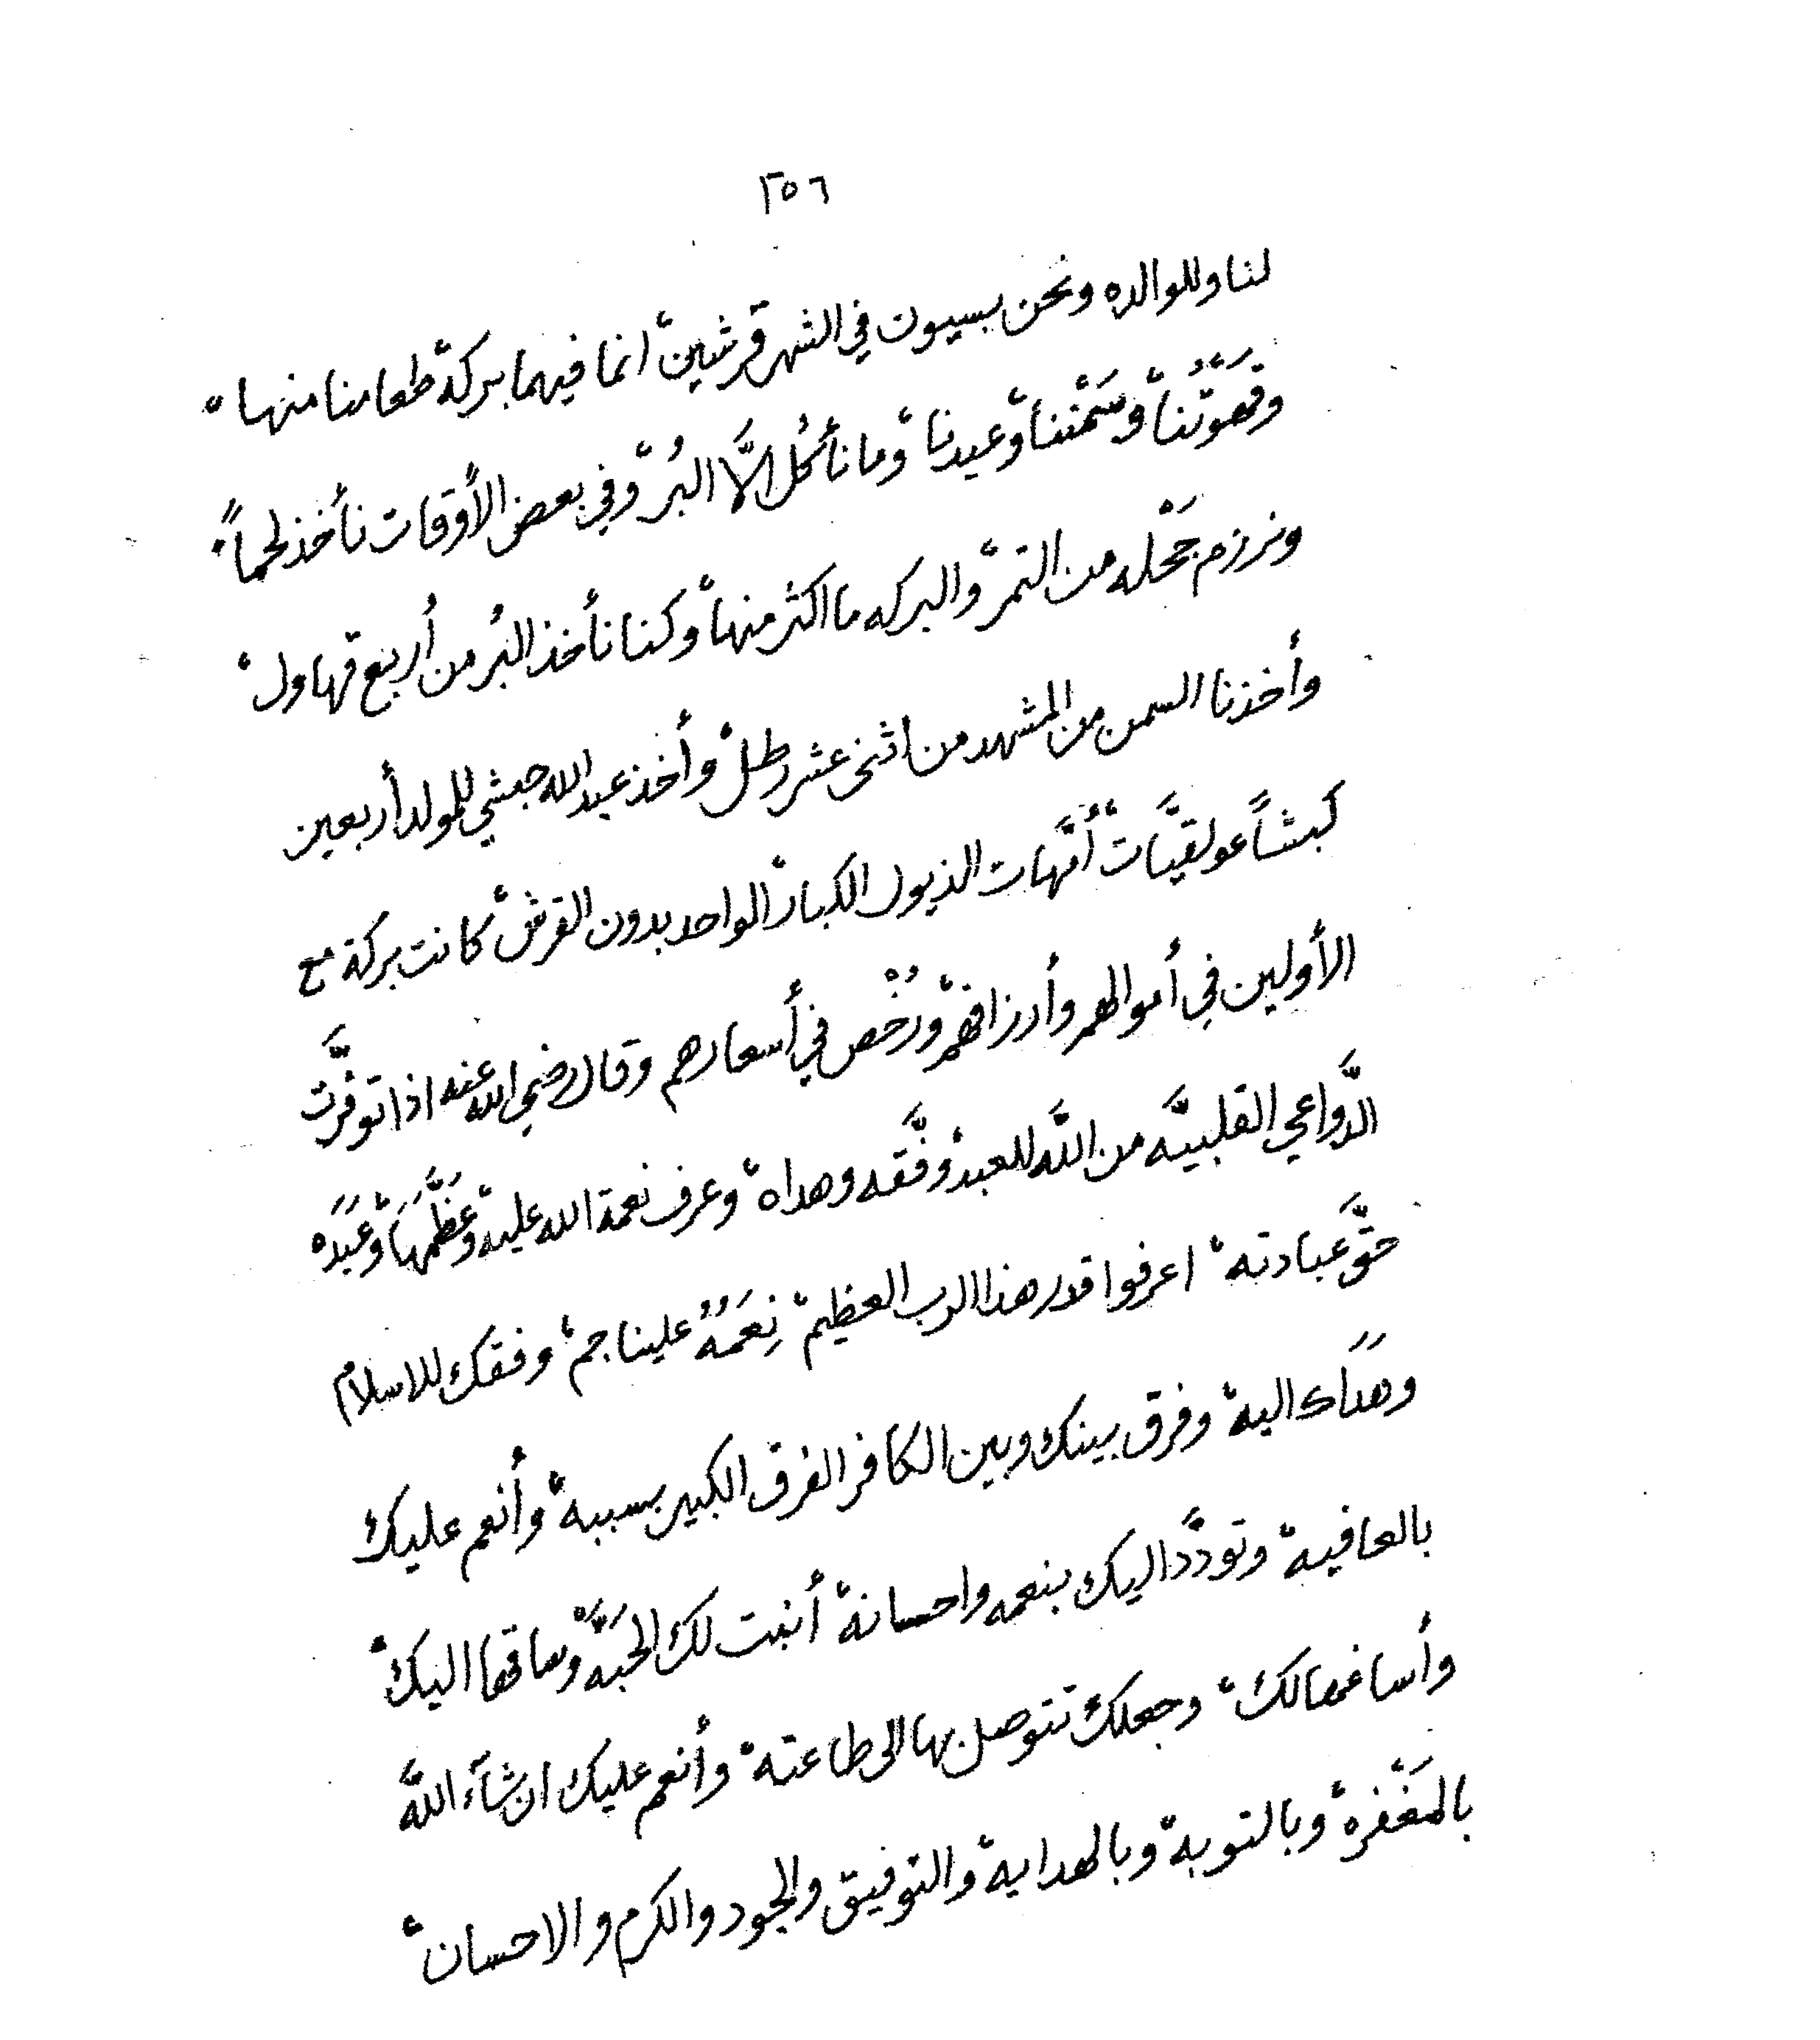 ٢٥٦
لنا وللوالده ونحن بسيون في الشهر قرشين، انما فيهما بركة، طعامنا منها،
وقَهوَتُنا، وسَمْننا، وعيدنا، وما نأكُل إلَّا البُر، وفي بعض الأوقات نأخذ لحماً.
ونرزم جَحْله من التمر، والبركه ما اكثر منها، وكنا نأخذ البُر من أربع قهاول،
وأخذنا السمن من المشهد من اثنى عشر رطل، وأخذ عبد الله حبشي للمولد أربعين
كبشاً عولقيَّات، أُمَّهات الذيول الكبار، الواحد بدون القرش، كانت بركة مع
الأولين في أموالهم وأرزاقهم، ورُخْص في أسعارهم وقال رضي الله عنه اذا توفَّرَت
الدَّواعي القلبيَّه من اللَّه للعبد، وفَّقه وهداه، وعرف نعمة الله عليه، وعَظَّمَهَا، وعَبَدَه
حقَّ عبادته، اعرفوا قدر هذا الرب العظيم، نِعَمُهُ علينا جم، وفقك للاسلام
وهَدَاك اليه، وفرق بينك وبين الكافر الفرق الكبير بسببه، وأنعم عليك
بالعافيه، وتودَّد اليك بنعمه واحسانه، أنبت لك الحَبَّهْ، وساقها اليك،
وأساغها لك، وجعلك تتوصل بها الى طاعته، وأنعم عليك ان شآء اللَّه
بالمَغْفره، وبالتوبه، وبالهدايه، والتوفيق والجود والكرم والاحسان،